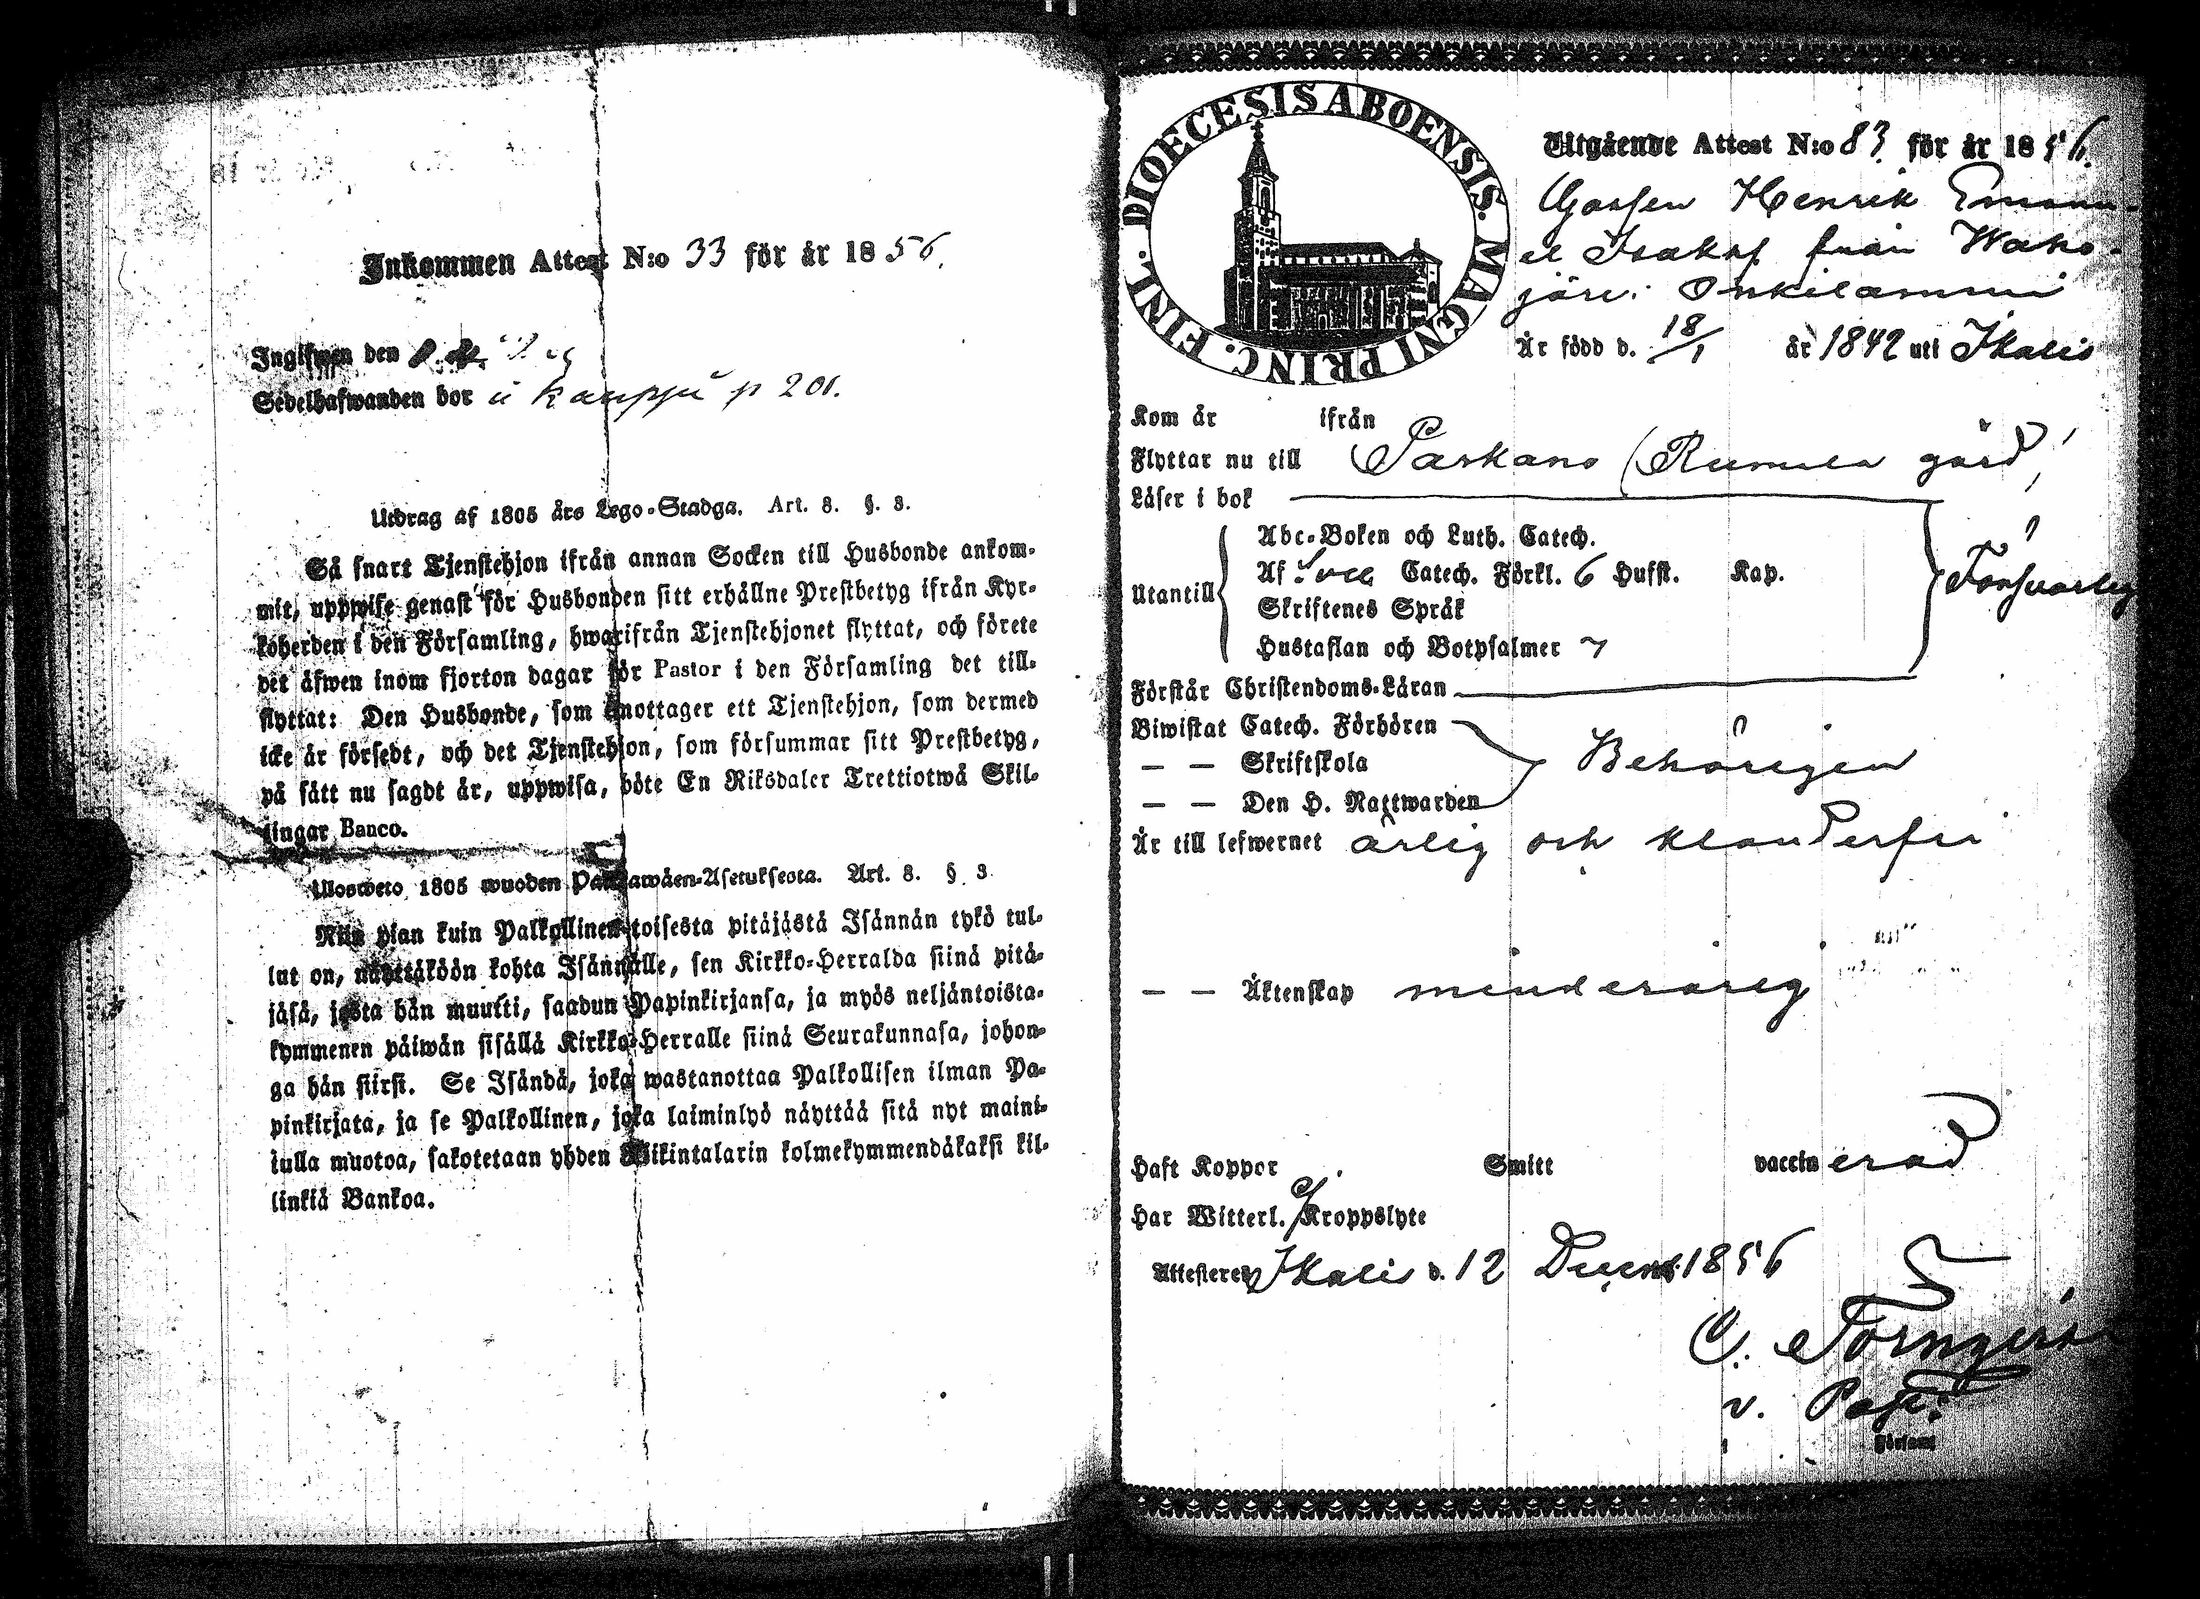 Inkommen Attest N:o 33 för år 1856.
Ingifwen den
Sedelhafwanden bor i kauppi p 201.
Utdrag af 1805 års Lego-Stadga. Art. 8. §. 3.
Så snart Tjenstehjon ifrån annan Socken till Husbonde ankom-
mit, uppwise genast för Husbonden sitt erhållne Prestbetyg ifrån Kyr-
koherden i den Församling, hwarifrån Tjenstehjonet flyttat, och förete
det äfwen inom fjorton dagar för Pastor i den Församling det till-
flyttat: Den Husbonde, som emottager ett Tjenstehjon, som dermed
icke är försedt, och det Tjenstehjon, som försummar sitt Prestbetyg,
på sätt nu sagdt är, uppwisa, böte En Riksdaler Trettiotwå Skil-
lingar Banco.
Ulosweto 1805 wuoden Palkkawäen-Asetuksesta. Art. 8. § 3
Niin pian kuin Palkollinen toisesta pitäjästä Isännän tykö tul-
lut on, näyttäköön kohta Isännälle, sen Kirkko-Herralda siinä pitä-
jäsä, josta hän muutti, saadun Papinkirjansa, ja myös neljäntoista-
kymmenen päiwän sisällä Kirkko-Herralle siinä Seurakunnasa, johon-
ga hän siirsi. Se Isändä, joka wastanottaa Palkollisen ilman Pa-
pinkirjata, ja se Palkollinen, joka laiminlyö näyttää sitä nyt maini-
tulla muotoa, sakotetaan yhden Riikintalarin kolmekymmendäkaksi kil-
linkiä Bankoa.
DIOECESIS ABOENSIS. MAGNI PRINC. FINL.
Utgående Attest N:o 83 för år 1856.
Gossen Henrik Emanu-
el Isaksf från Waho-
järvi Onkilammi
Är född d. 18/1 år 1842 uti Ikalis
Kom år ifrån
Flyttar nu till Parkano (Rumala gård)
Läser i bok
Utantill
Abc-Boken och Luth. Catech.
Af Svea Catech. Förkl. 6 Hufst. Kap.
Skriftenes Språk
Hustaflan och Botpsalmer 7
Försvarlig
Förstår Christendoms-Läran
Biwistat Catech. Förhören
— — Skriftskola
— — Den H. Nattwarden
Behörigen
Är till lefwernet ärlig och klanderfri
— — Äktenskap minderårig
Haft Koppor Smitt vaccinerad
Har Witterl. Kroppslyte
Attesterer Ikalis d. 12 Decemb. 1856
C. Törnqvist
v. Past.
Församl